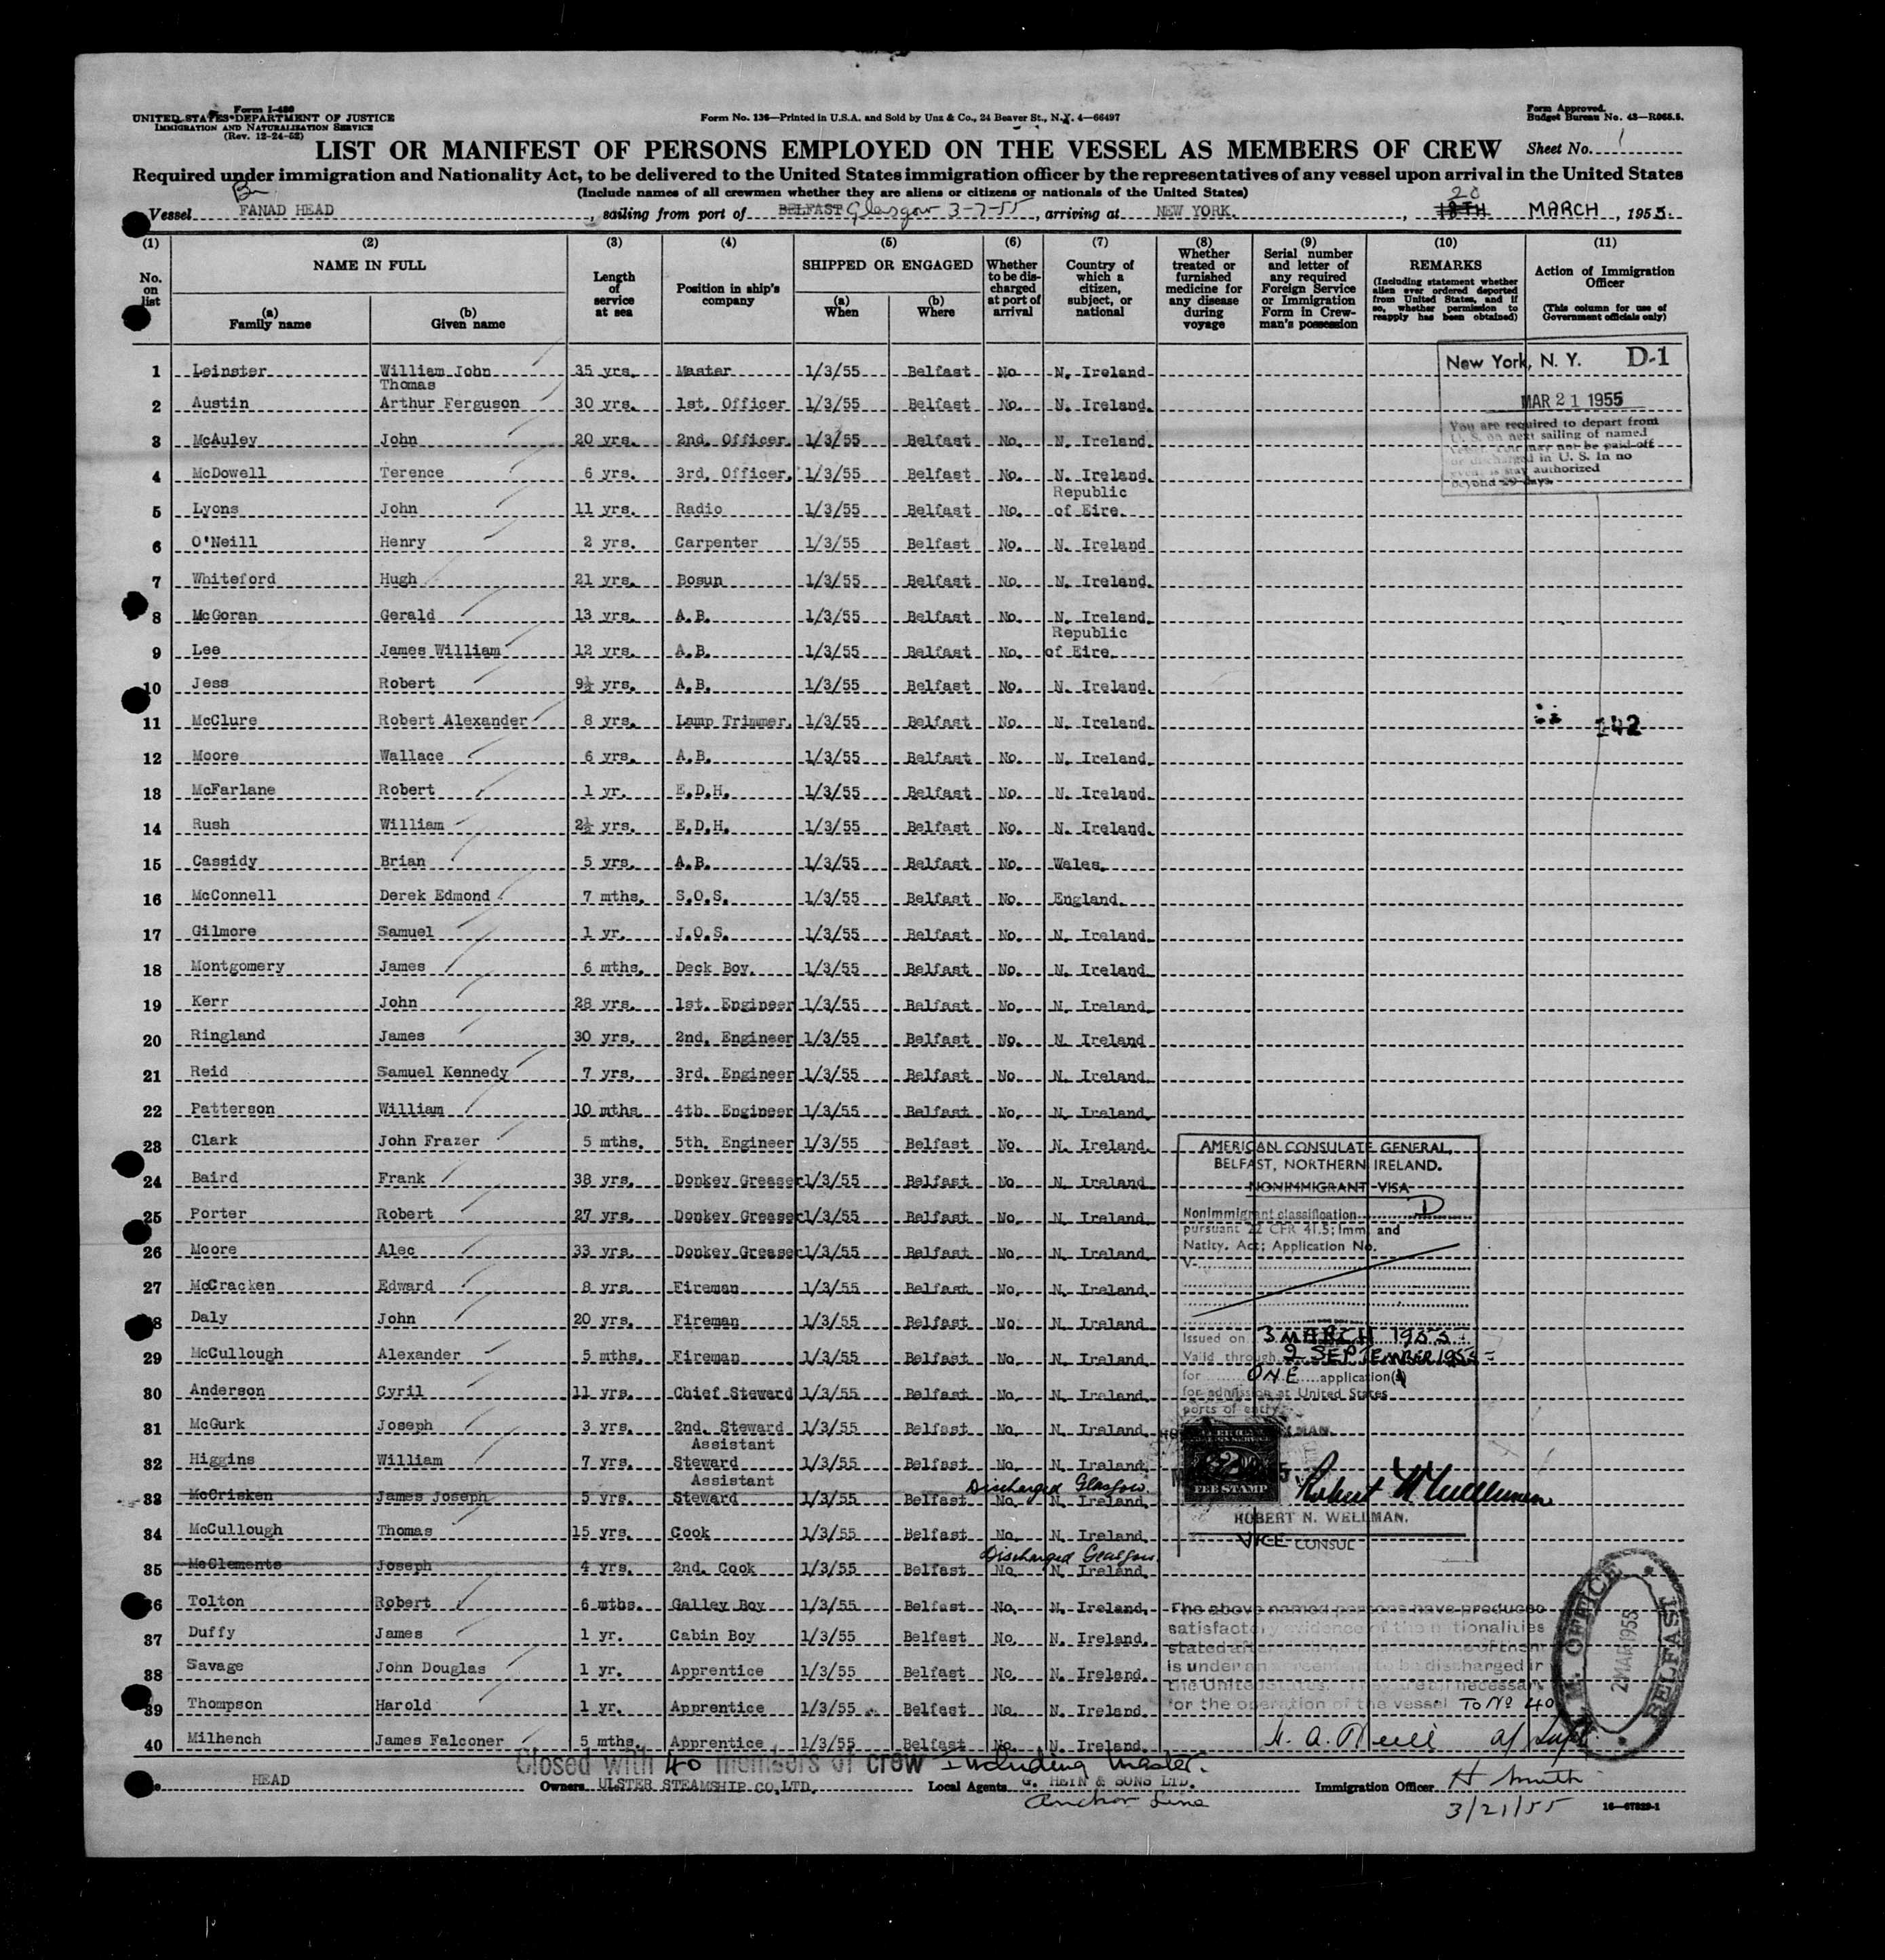 Form I-480
UNITED STATES DEPARTMENT OF JUSTICE
IMMIGRATION AND NATURALIZATION SERVICE
(Rev. 12-24-52)
Form No. 136—Printed in U.S.A. and Sold by Unz & Co., 24 Beaver St., N.Y. 4—66497
Form Approved.
Budget Bureau No. 43—R065.5.
LIST OR MANIFEST OF PERSONS EMPLOYED ON THE VESSEL AS MEMBERS OF CREW
Sheet No. 1
Required under immigration and Nationality Act, to be delivered to the United States immigration officer by the representatives of any vessel upon arrival in the United States
(Include names of all crewmen whether they are aliens or citizens or nationals of the United States)
Br
Vessel FANAD HEAD, sailing from port of BELFAST Glasgow 3-7-55, arriving at NEW YORK., 18TH 20 MARCH, 1955.
(1) (2) (3) (4) (5) (6) (7) (8) (9) (10) (11)
No. on list
NAME IN FULL
(a) Family name
(b) Given name
Length of service at sea
Position in ship's company
SHIPPED OR ENGAGED
(a) When
(b) Where
Whether to be discharged at port of arrival
Country of which a citizen, subject, or national
Whether treated or furnished medicine for any disease during voyage
Serial number and letter of any required Foreign Service or Immigration Form in Crewman's possession
REMARKS
(Including statement whether alien ever ordered deported from United States, and if so, whether permission to reapply has been obtained)
Action of Immigration Officer
(This column for use of Government officials only)
1 Leinster William John Thomas 35 yrs. Master 1/3/55 Belfast No N. Ireland
2 Austin Arthur Ferguson 30 yrs. 1st. Officer 1/3/55 Belfast No. N. Ireland.
3 McAuley John 20 yrs. 2nd. Officer. 1/3/55 Belfast No. N. Ireland.
4 McDowell Terence 6 yrs. 3rd. Officer. 1/3/55 Belfast No. N. Ireland.
5 Lyons John 11 yrs. Radio 1/3/55 Belfast No. Republic of Eire.
6 O'Neill Henry 2 yrs. Carpenter 1/3/55 Belfast No. N. Ireland
7 Whiteford Hugh 21 yrs. Bosun 1/3/55 Belfast No. N. Ireland.
8 McGoran Gerald 13 yrs. A.B. 1/3/55 Belfast No. N. Ireland.
9 Lee James William 12 yrs. A.B. 1/3/55 Belfast No. Republic of Eire.
10 Jess Robert 9½ yrs. A.B. 1/3/55 Belfast No. N. Ireland.
11 McClure Robert Alexander 8 yrs. Lamp Trimmer. 1/3/55 Belfast No. N. Ireland. 142
12 Moore Wallace 6 yrs. A.B. 1/3/55 Belfast No. N. Ireland.
13 McFarlane Robert 1 yr. E.D.H. 1/3/55 Belfast No. N. Ireland.
14 Rush William 2½ yrs. E.D.H. 1/3/55 Belfast No. N. Ireland.
15 Cassidy Brian 5 yrs. A.B. 1/3/55 Belfast No. Wales.
16 McConnell Derek Edmond 7 mths. S.O.S. 1/3/55 Belfast No. England.
17 Gilmore Samuel 1 yr. J.O.S. 1/3/55 Belfast No. N. Ireland.
18 Montgomery James 6 mths. Deck Boy. 1/3/55 Belfast No. N. Ireland.
19 Kerr John 28 yrs. 1st. Engineer 1/3/55 Belfast No. N. Ireland.
20 Ringland James 30 yrs. 2nd. Engineer 1/3/55 Belfast No. N. Ireland
21 Reid Samuel Kennedy 7 yrs. 3rd. Engineer 1/3/55 Belfast No. N. Ireland.
22 Patterson William 10 mths. 4th. Engineer 1/3/55 Belfast No. N. Ireland.
23 Clark John Frazer 5 mths. 5th. Engineer 1/3/55 Belfast No. N. Ireland.
24 Baird Frank 38 yrs. Donkey Greaser 1/3/55 Belfast No. N. Ireland
25 Porter Robert 27 yrs. Donkey Greaser 1/3/55 Belfast No. N. Ireland.
26 Moore Alec 33 yrs. Donkey Greaser 1/3/55 Belfast No. N. Ireland.
27 McCracken Edward 8 yrs. Fireman 1/3/55 Belfast No. N. Ireland.
28 Daly John 20 yrs. Fireman 1/3/55 Belfast No. N. Ireland
29 McCullough Alexander 5 mths. Fireman 1/3/55 Belfast No. N. Ireland.
30 Anderson Cyril 11 yrs. Chief Steward 1/3/55 Belfast No. N. Ireland
31 McGurk Joseph 3 yrs. 2nd. Steward 1/3/55 Belfast No. N. Ireland.
32 Higgins William 7 yrs. Assistant Steward 1/3/55 Belfast No. N. Ireland.
33 McCrisken James Joseph 5 yrs. Assistant Steward 1/3/55 Belfast No. N. Ireland. Discharged Glasgow.
34 McCullough Thomas 15 yrs. Cook 1/3/55 Belfast No. N. Ireland.
35 McClements Joseph 4 yrs. 2nd. Cook 1/3/55 Belfast No. N. Ireland. Discharged Glasgow.
36 Tolton Robert 6 mths. Galley Boy 1/3/55 Belfast No. N. Ireland.
37 Duffy James 1 yr. Cabin Boy 1/3/55 Belfast No. N. Ireland.
38 Savage John Douglas 1 yr. Apprentice 1/3/55 Belfast No. N. Ireland.
39 Thompson Harold 1 yr. Apprentice 1/3/55 Belfast No. N. Ireland.
40 Milhench James Falconer 5 mths. Apprentice 1/3/55 Belfast No. N. Ireland.
New York, N. Y. D-1
MAR 21 1955
You are required to depart from
U. S. on next sailing of named
vessel. You may not be paid off
or discharged in U. S. In no
event is stay authorized
beyond 29 days.
AMERICAN CONSULATE GENERAL,
BELFAST, NORTHERN IRELAND.
NONIMMIGRANT VISA
Nonimmigrant classification D
pursuant 22 CFR 41.5; Imm. and
Natlty. Act; Application No.
V-
Issued on 3 MARCH 1955
Valid through 2 SEPTEMBER 1955
for ONE application(s)
for admission at United States
ports of entry.
FEE STAMP
Robert N Wellman
ROBERT N. WELLMAN.
VICE CONSUL
The above named persons have produced
satisfactory evidence of the nationalities
stated after
is under an agreement to be discharged in
the United States. They are all necessary
for the operation of the vessel To No 40
IM. OFFICE BELFAST
2 MAR 1955
Closed with 40 members of crew Including Master.
HEAD
Owners ULSTER STEAMSHIP CO. LTD.
Local Agents G. HEYN & SONS LTD.
Anchor Line
Immigration Officer H Smith
3/21/55
16—67829-1